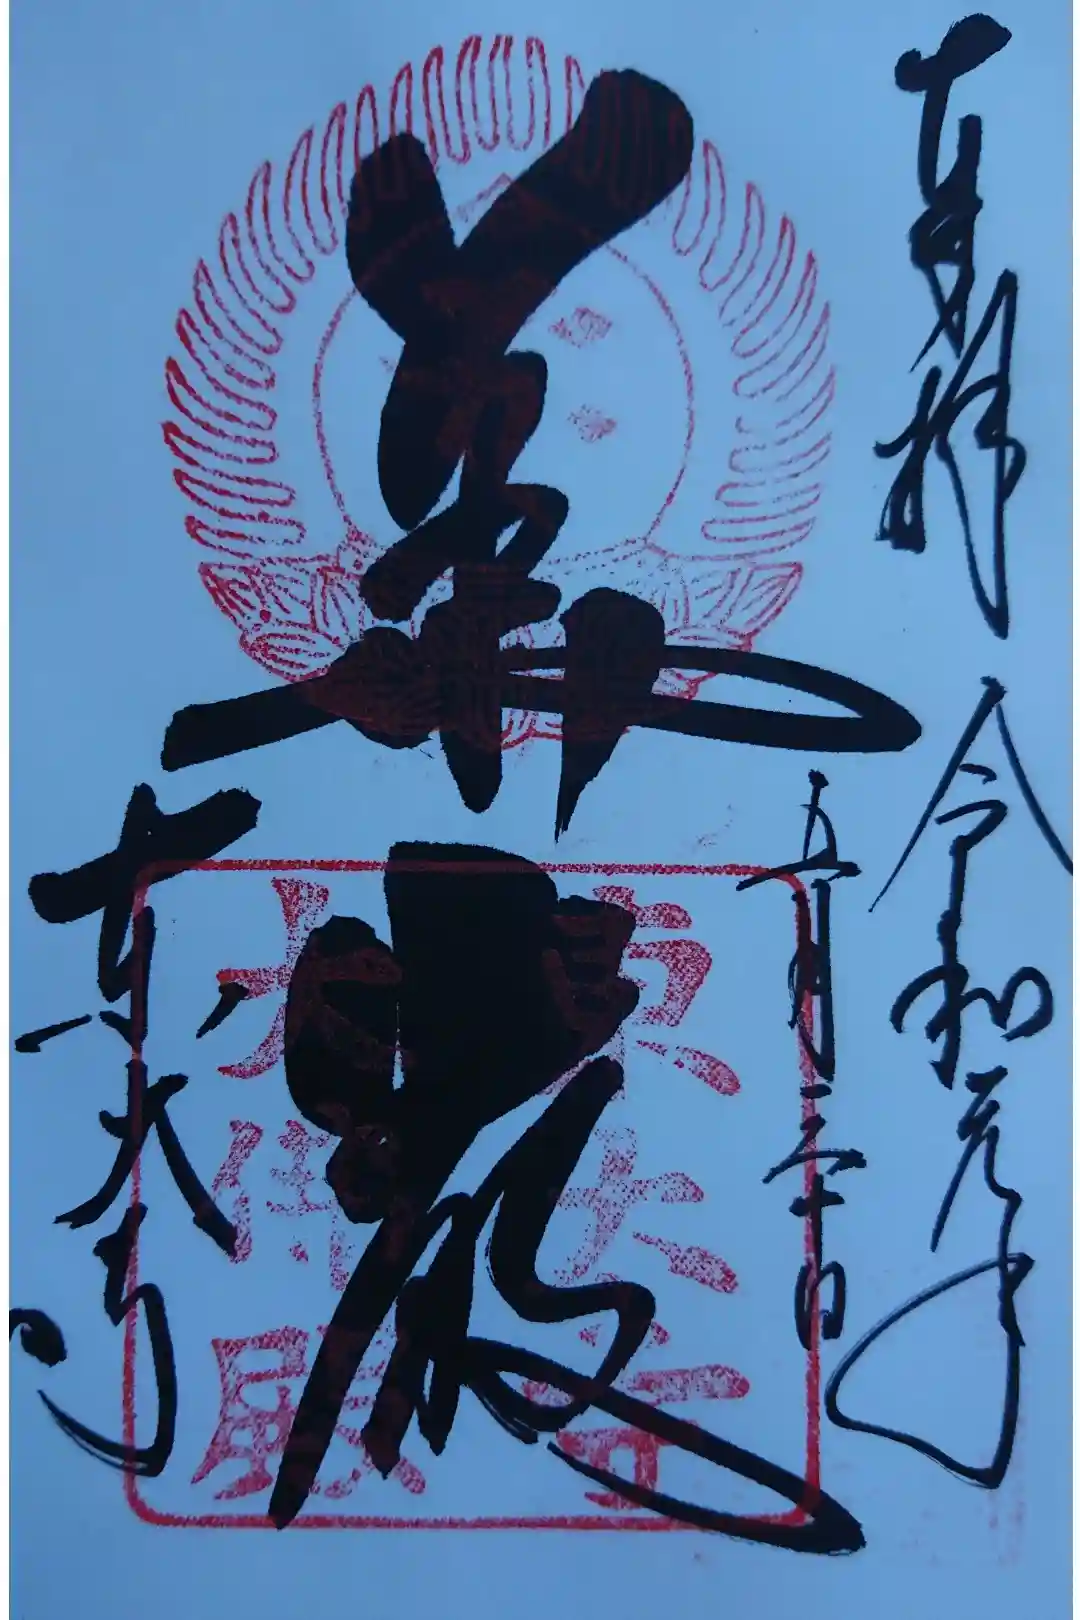 奉拝 令和元年
五月二十日
華厳
東大寺
東大寺
大佛殿